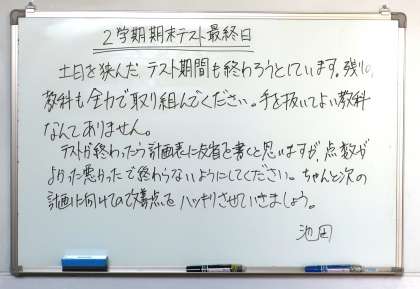 2学期期末テスト最終日
土日を挟んだテスト期間も終わろうとしています。残りの
教科も全力で取り組んでください。手を抜いてよい教科
なんてありません。
テストが終わったら計画表に反省を書くと思いますが、点数が
よかった悪かったで終わらないようにしてください。ちゃんと次の
計画に向けての改善点をハッキリさせていきましょう。
池田